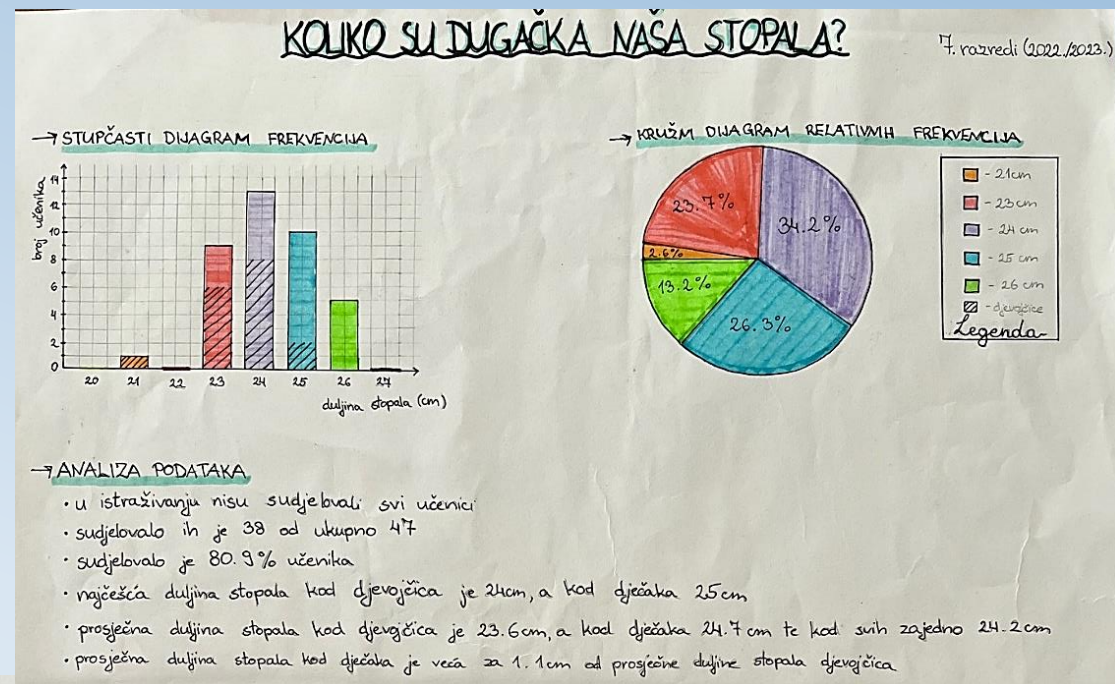 KOLIKO SU DUGAČKA NAŠA STOPALA?
7. razredi (2022./2023.)
→ STUPČASTI DIJAGRAM FREKVENCIJA
broj učenika
14
12
10
8
6
4
2
0
20 21 22 23 24 25 26 27
duljina stopala (cm)
→ KRUŽNI DIJAGRAM RELATIVNIH FREKVENCIJA
23.7%
34.2%
2.6%
13.2%
26.3%
- 21cm
- 23cm
- 24 cm
- 25 cm
- 26 cm
- djevojčice
Legenda
→ ANALIZA PODATAKA
• u istraživanju nisu sudjelovali svi učenici
• sudjelovalo ih je 38 od ukupno 47
• sudjelovalo je 80.9% učenika
• najčešća duljina stopala kod djevojčica je 24cm, a kod dječaka 25cm
• prosječna duljina stopala kod djevojčica je 23.6cm, a kod dječaka 24.7cm te kod svih zajedno 24.2cm
• prosječna duljina stopala kod dječaka je veća za 1.1cm od prosječne duljine stopala djevojčica